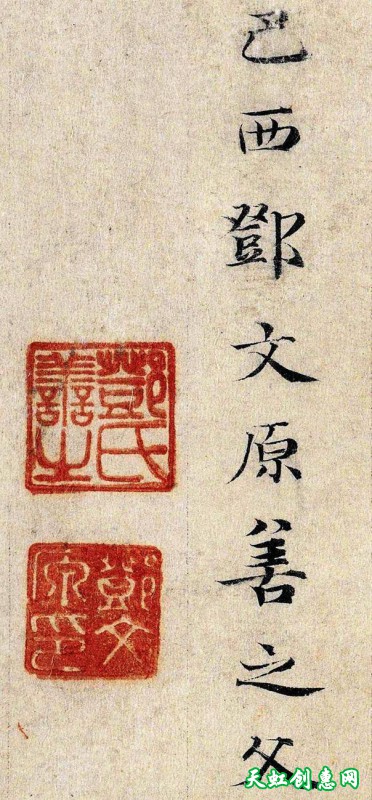 巴西鄧文原善之父
鄧氏
善之
鄧文
原印
天虹创惠网